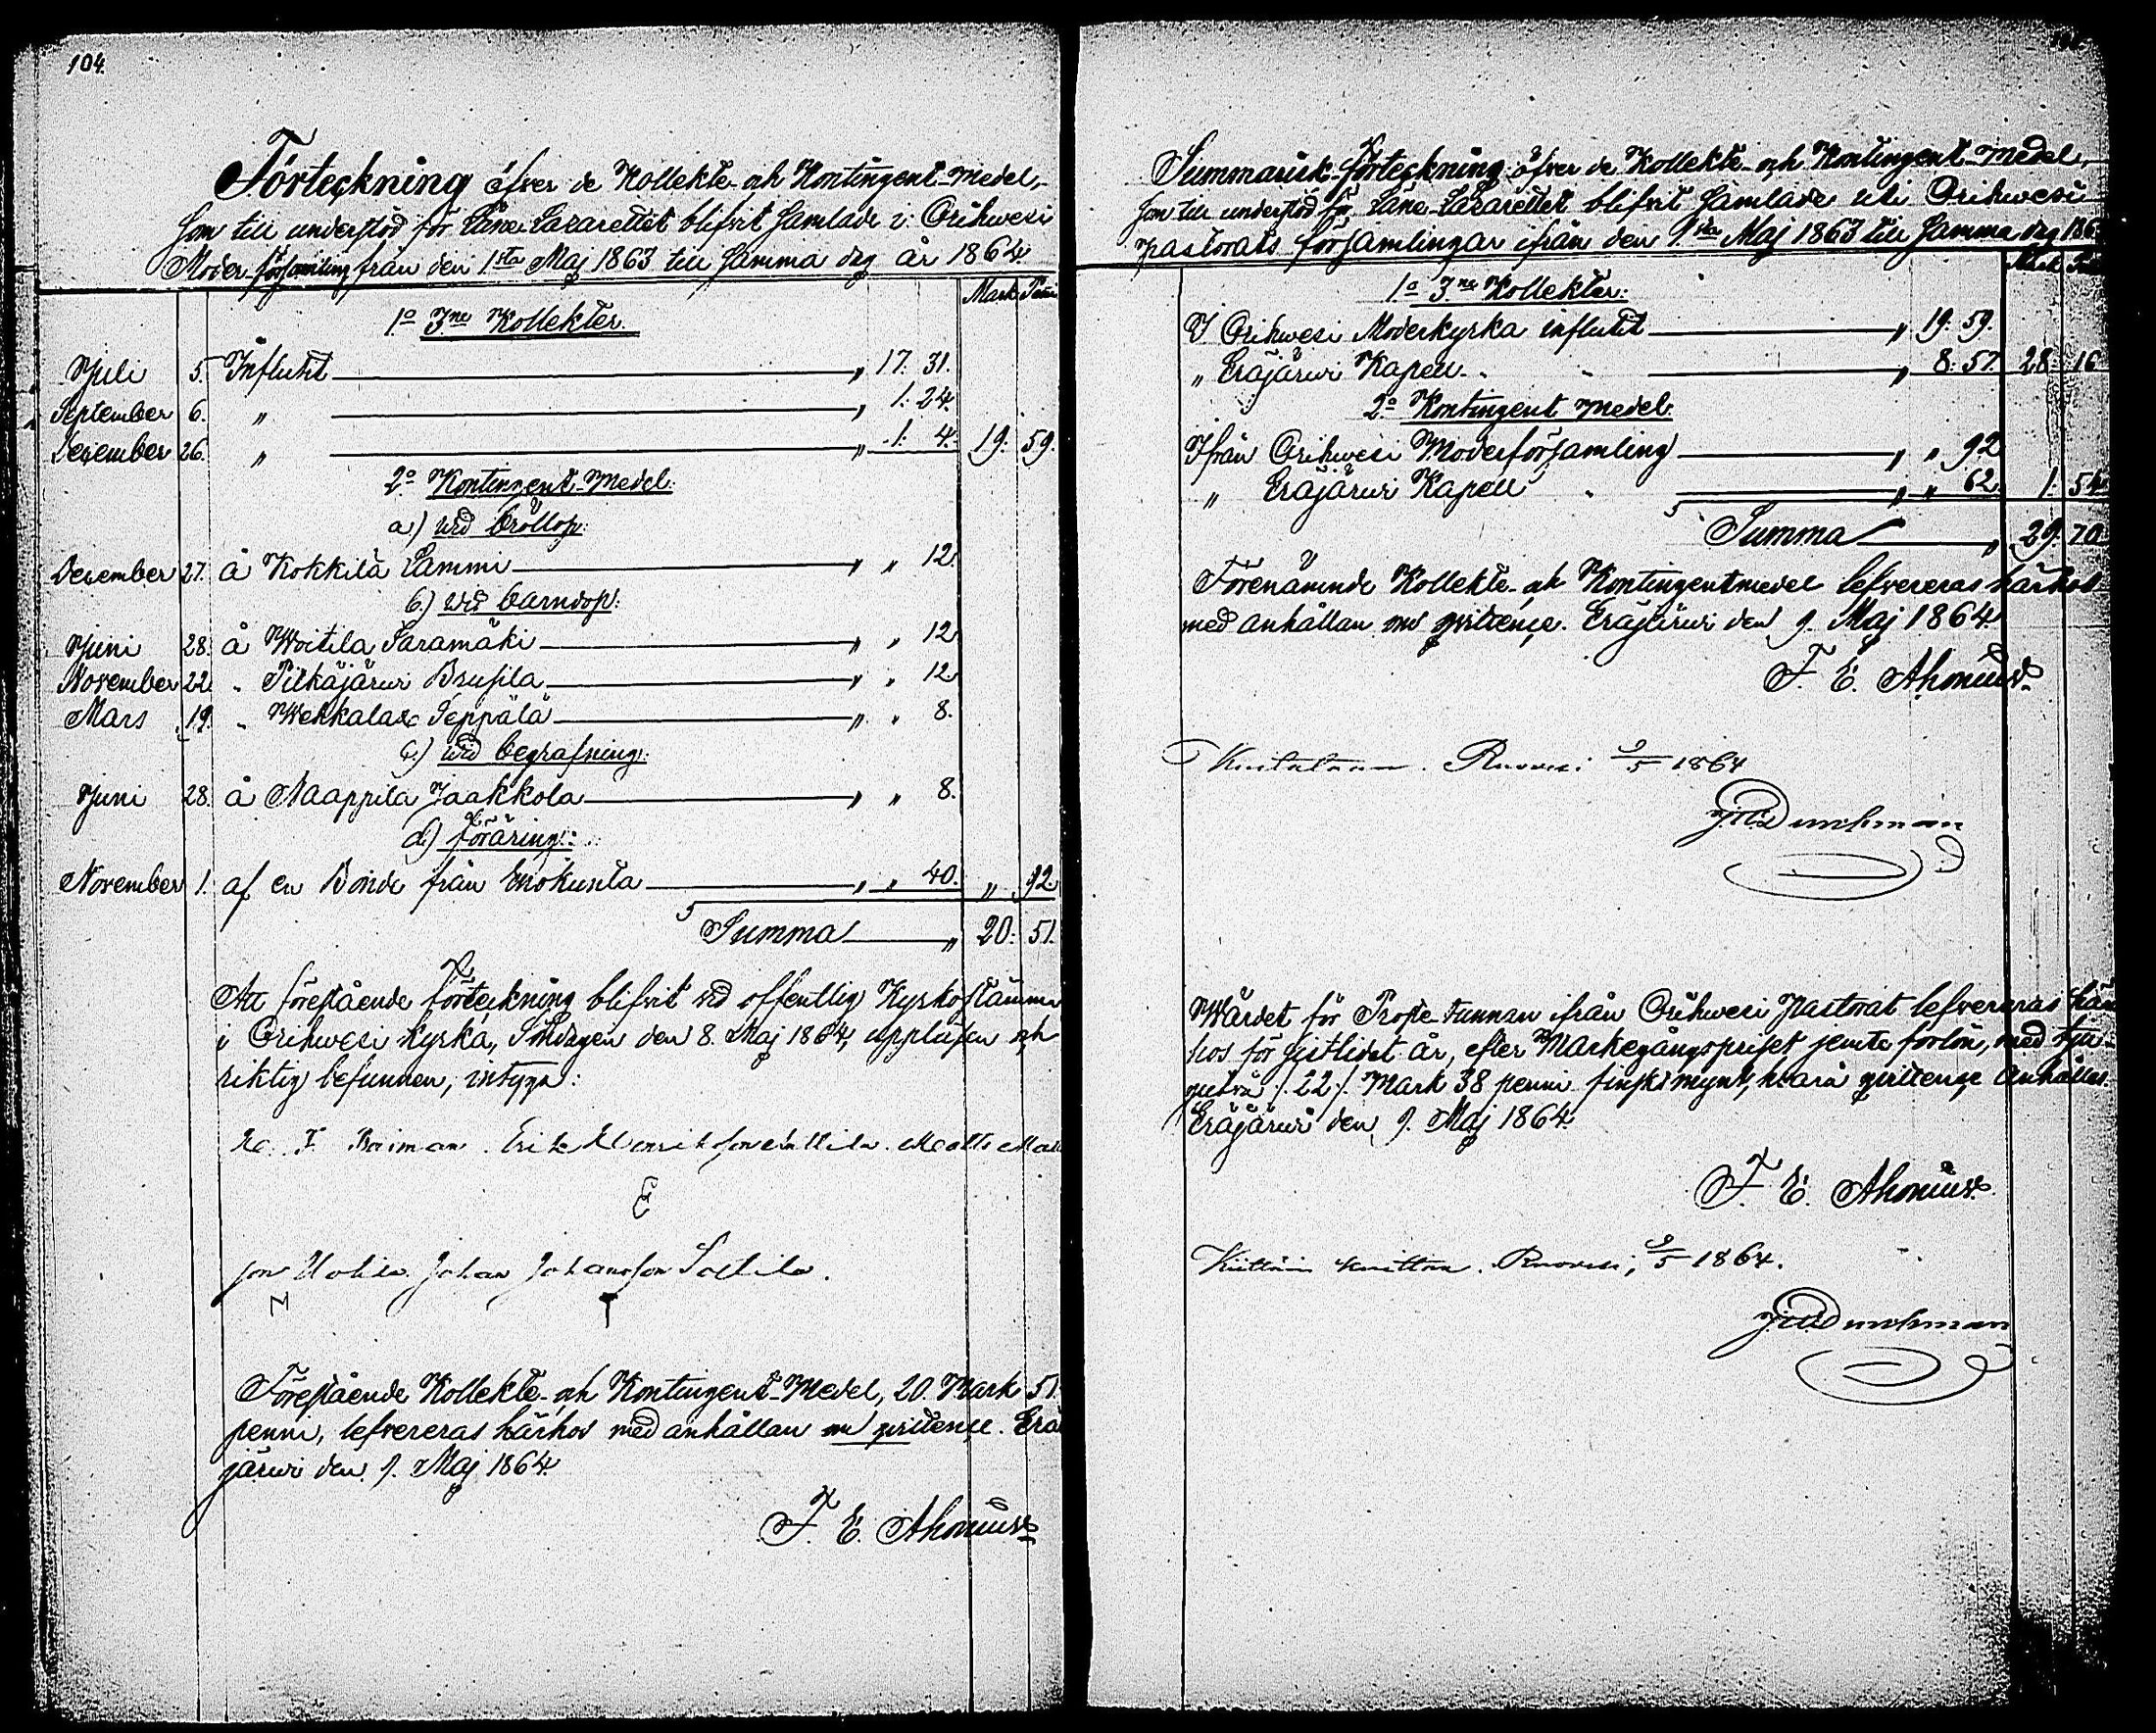 104.
Förteckning öfver de Kollekte- och Kontingent-Medel,
som till understöd för Läne Lazarettet blifvit samlade i Orihwesi
Moder församling från den 1sta Maj 1863 till samma dag år 1864
Mark Penni
1o 3ne Kollekter.
Juli 5. Influtit „ 17. 31.
September 6. „ „ 1. 24.
December 26. „ „ 1. 4. 19. 59.
2o Kontingent-Medel.
a) wid bröllop:
December 27. å Kokkila Lammi „ „ 12.
b.) wid barndop:
Juni 28. å Woitila Saramäki „ „ 12
November 22 „ Pitkäjärwi Brusila „ „ 12
Mars 19. „ Wehkalax Seppälä „ „ 8.
c.) wid begrafning:
Juni 28. å Naappila Jaakkola „ „ 8.
d) föräring:
November 1. af en Bonde från Enokunta „ „ 40. „ 92
Summa „ 20. 51.
Att förestående förteckning blifvit vid offentlig Kyrkostämma
i Orihwesi kyrka, Söndagen den 8. Maj 1864, uppläsen och
riktig befunnen, intyga:
Erik Henriksson Matts
son Johan Johansson
Förestående Kollekte- och Kontingent-Medel, 20. Mark 51.
penni, lefvereras härhos med anhållan om qvittence. Erä
järwi den 9. Maj 1864.
F. E. Ahonius
Summarisk förteckning öfver de Kollekte- och Kontingent-Medel,
som till understöd för Läne-Lazarettet blifvit samlade uti Orihwesi
pastorats församlingar ifrån den 1sta Maj 1863 till samma dag 186
Mark
1o 3ne Kollekter:
I Orihwesi Moderkyrka influtit „ 19. 59.
„ Eräjärwi Kapell „ „ 8. 57. 28. 16
2o Kontingent Medel.
Ifrån Orihwesi Moderförsamling „ „ 92
„ Eräjärwi Kapell „ „ 62. 1. 54
Summa „ 29. 70
Förenämnde Kollekte- och Kontingentmedel lefvereras härhos
med anhållan om qvittence. Eräjärwi den 9. Maj 1864.
F. E. Ahonius
Kuitataan. Ruovesi 9/5 1864
Durchman
Wärdet för Prosté tunnan ifrån Orihwesi Pastorat lefvereras här
hos för sistlidet år, efter Markegångspriset jemte forlön, med tju-
gutvå /. 22 /. Mark 38 penni finskt mynt, hvarå qvittence anhålles.
Eräjärwi den 9. Maj 1864.
F. E. Ahonius
Ruovesi, 9/5 1864.
Durchman